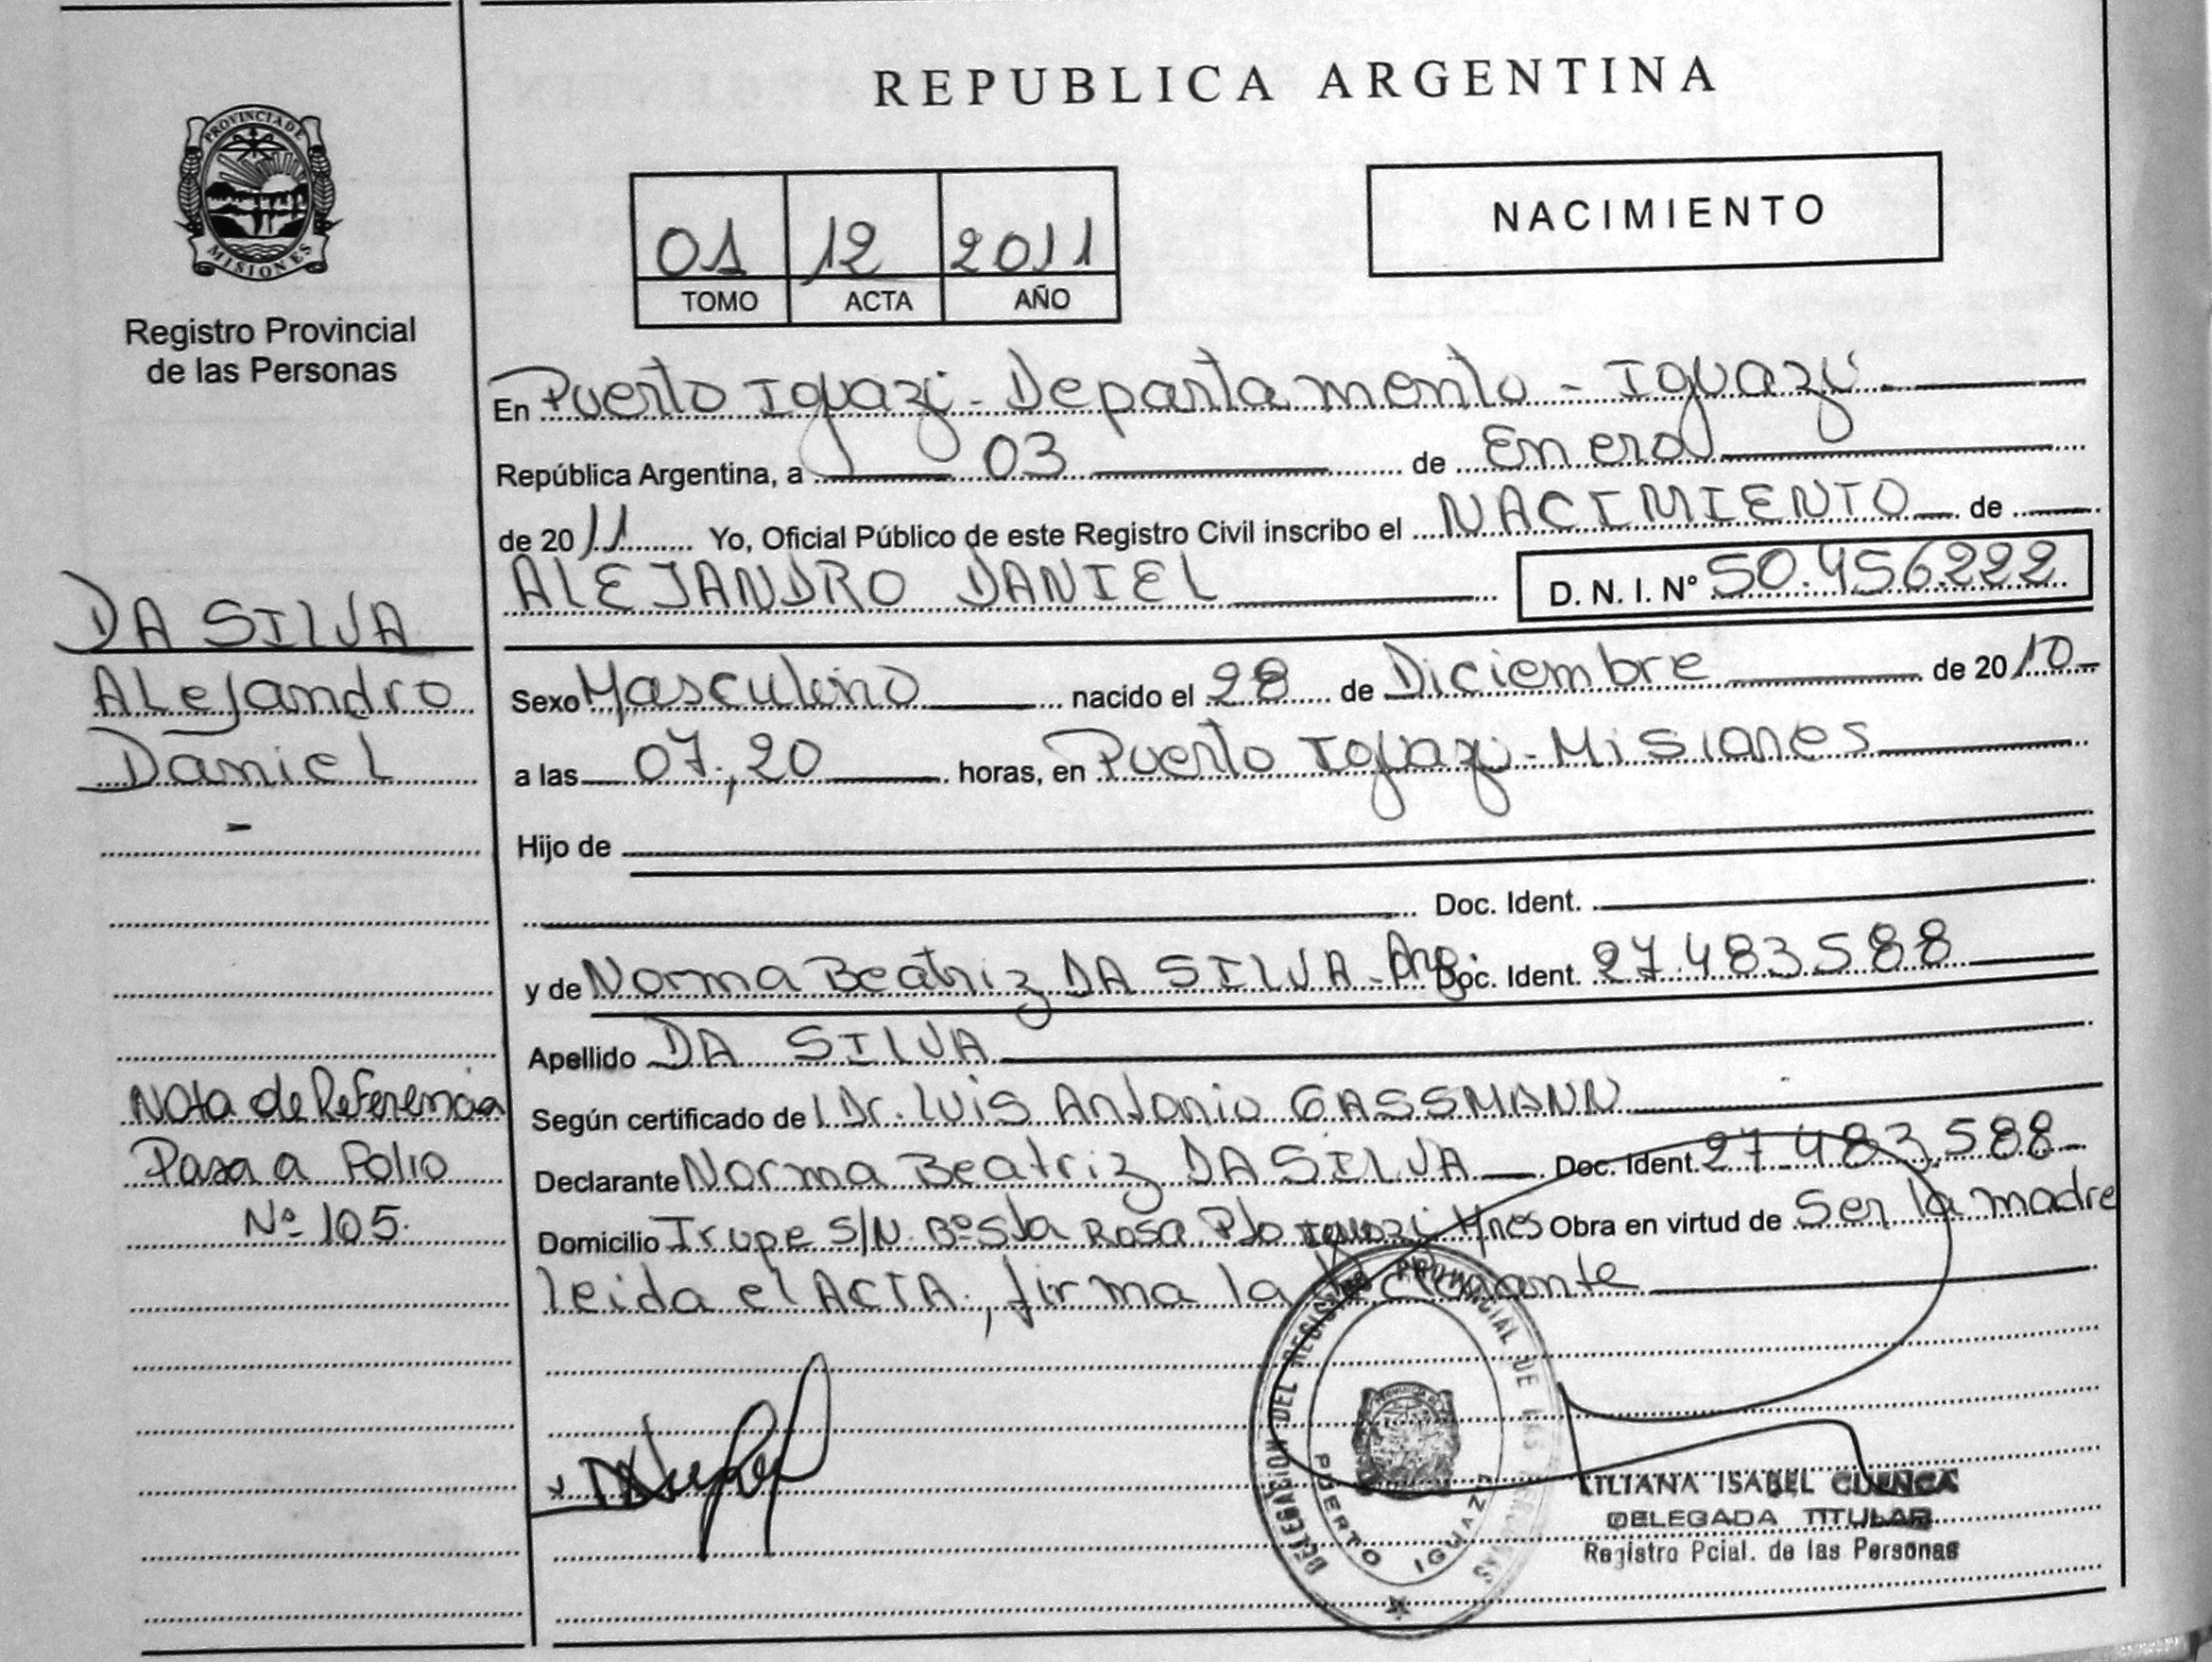 REPUBLICA ARGENTINA
PROVINCIA DE
MISIONES
Registro Provincial
de las Personas
01 12 2011
TOMO ACTA AÑO
NACIMIENTO
En Puerto Iguazú - Departamento - Iguazú
República Argentina, a 03 de Enero
de 2011 Yo, Oficial Público de este Registro Civil inscribo el NACIMIENTO de
ALEJANDRO DANIEL D. N. I. Nº 50.456222
DA SILVA
Alejandro
Daniel
Sexo Masculino nacido el 28 de Diciembre de 2010
a las 07,20 horas, en Puerto Iguazú - Misiones
Hijo de
Doc. Ident.
y de Norma Beatriz DA SILVA - Arg. Doc. Ident. 27.483.588
Apellido DA SILVA
Según certificado de Dr. Luis Antonio GASSMANN
Declarante Norma Beatriz DA SILVA Doc. Ident. 27.483.588
Domicilio Irupe S/N. Bº Sta Rosa Pto Iguazú Mnes Obra en virtud de Ser la madre
leida el ACTA, firma la declarante
Nota de Referencia
Pasa a Folio
Nº 105.
DELEGACION DEL REGISTRO PROVINCIAL DE LAS PERSONAS
PUERTO IGUAZU
LILIANA ISABEL CUENCA
DELEGADA TITULAR
Registro Pcial. de las Personas